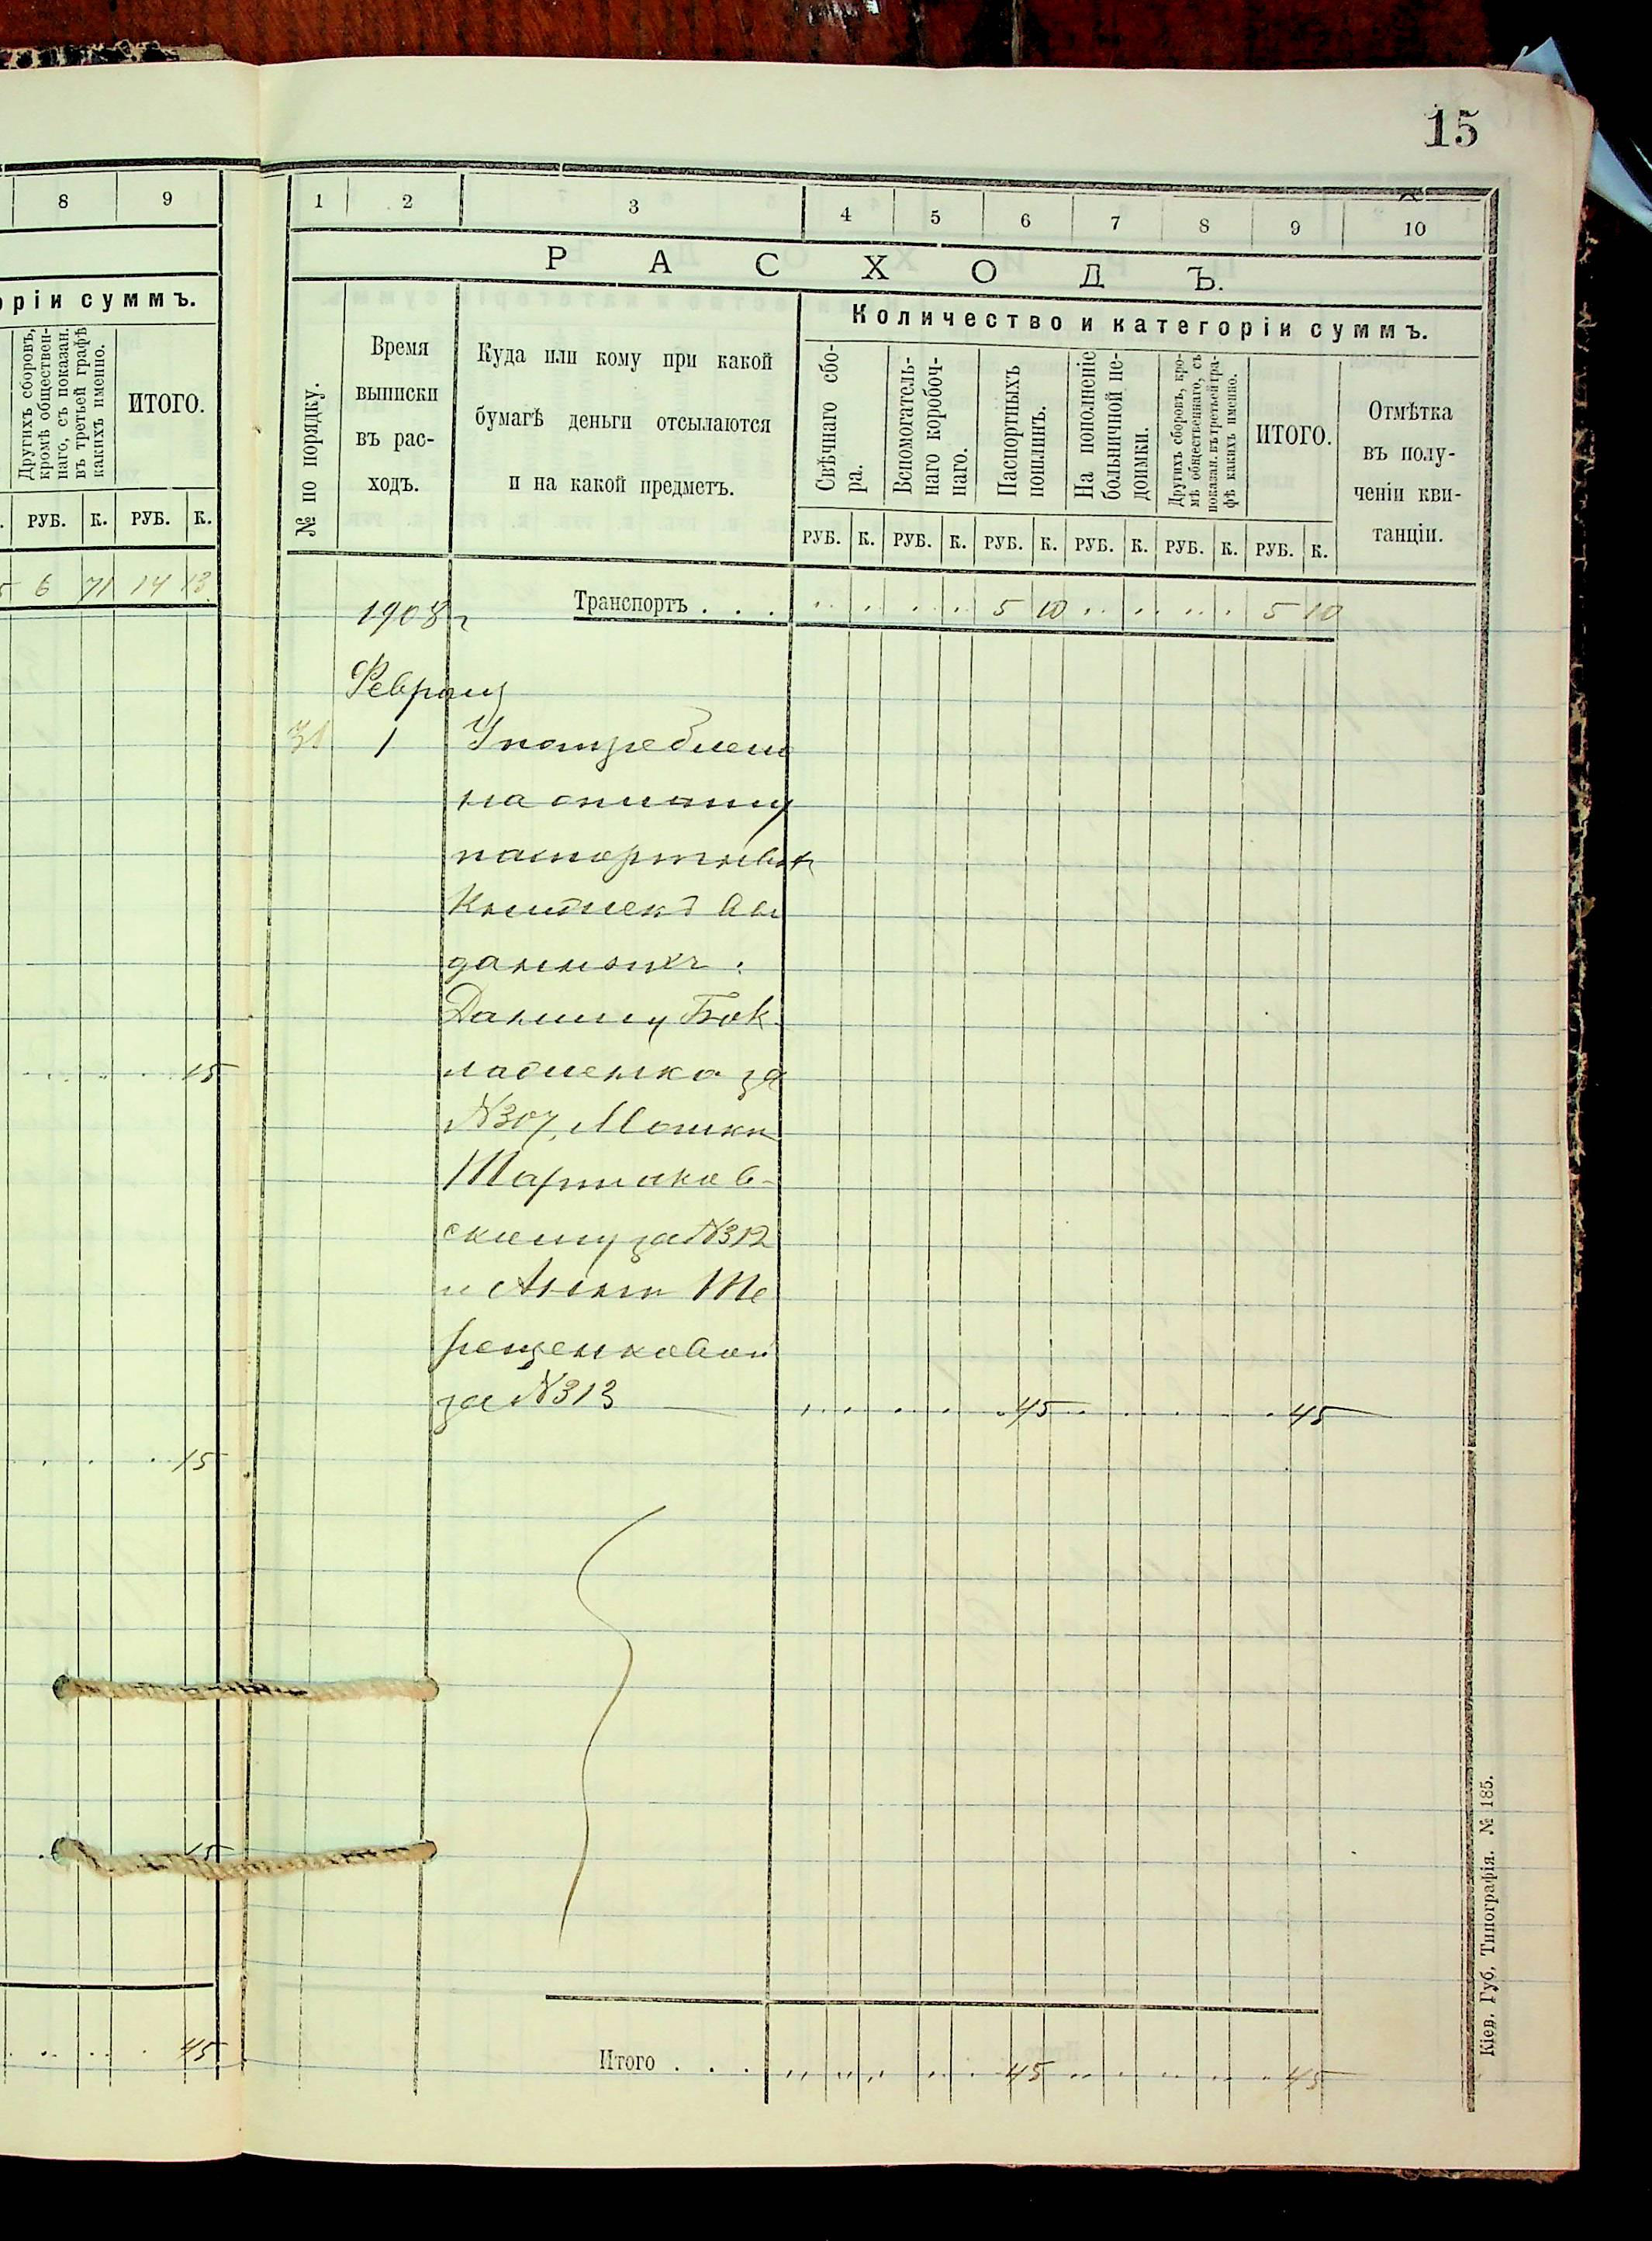 15
8 9
оріи суммъ.
Другихъ сборовъ,
кромѣ обществен-
наго, съ показан.
въ третьей графѣ
какихъ именно.
ИТОГО.
РУБ. К. РУБ. К.
6 71 14 13
15
15
15
45
1 2 3 4 5 6 7 8 9 10
РАСХОДЪ.
№ по порядку.
Время
выписки
въ рас-
ходъ.
Куда или кому при какой
бумагѣ деньги отсылаются
и на какой предметъ.
Количество и категоріи суммъ.
Свѣчнаго сбо-
ра.
Вспомогатель-
наго коробоч-
наго.
Паспортныхъ
пошлинъ.
На пополненіе
больничной не-
доимки.
Другихъ сборовъ, кро-
мѣ общественнаго, съ
показан. въ третьей гра-
фѣ какихъ именно.
ИТОГО.
Отмѣтка
въ полу-
ченіи кви-
танціи.
РУБ. К. РУБ. К. РУБ. К. РУБ. К. РУБ. К. РУБ. К.
1908 г Транспортъ . . . 5 10 5 10
Февраля
31 1 Употреблено
на
паспортныхъ
книжекъ вы
данныхъ:
Данилу Бок
за
№307, Мошки
скому за №312
и Анни Те
рещенковой
за №313 45 45
Итого . . . 45 45
Кіев. Губ. Типографія. № 185.